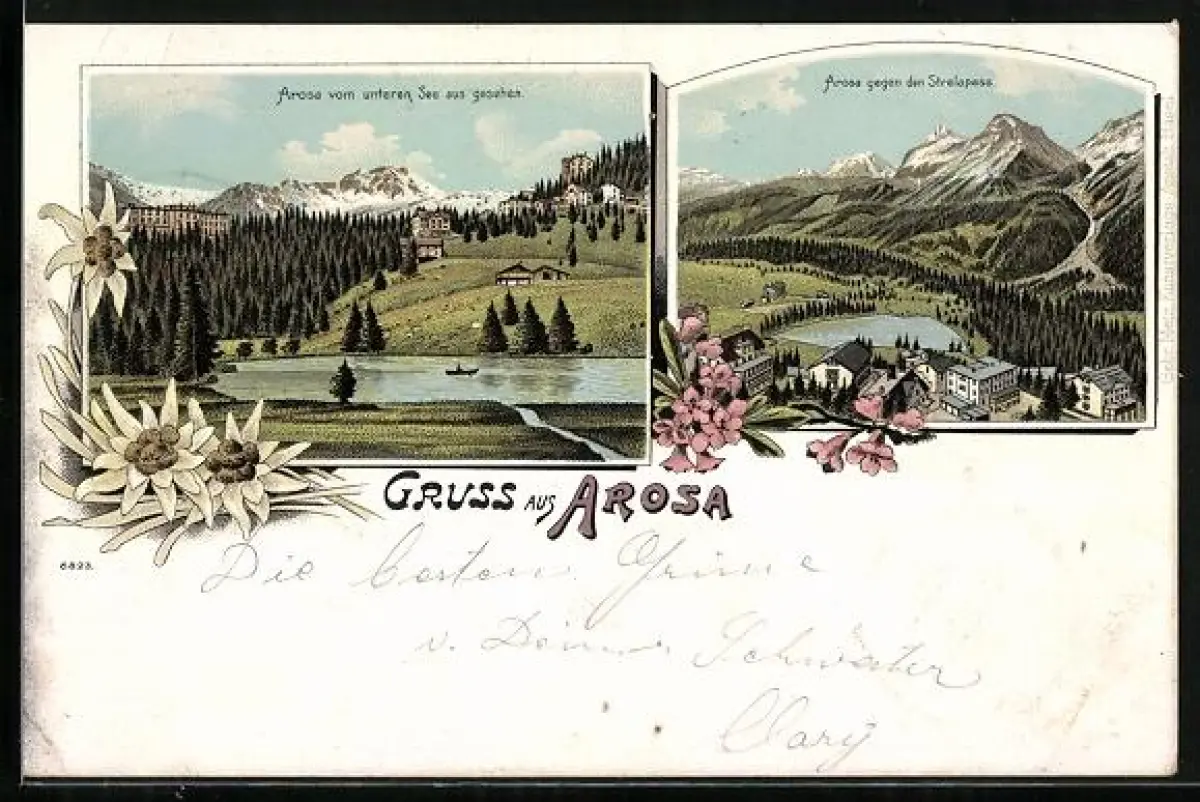 Arosa vom unteren See aus gesehen.
Arosa gegen den Strelapass.
GRUSS AUS AROSA
6823.
Die besten Grüsse
v. Deiner Schwester